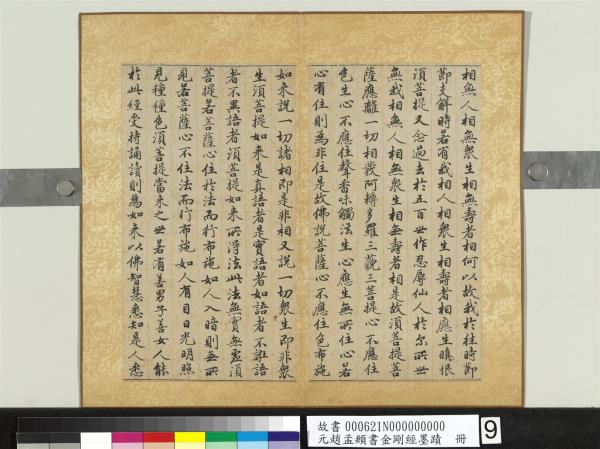 相無人相無衆生相無壽者相何以故我於往時節
節支解時若有我相人相衆生相壽者相應生瞋恨
須菩提又念過去於五百世作忍辱仙人於尔所世
無我相無人相無衆生相無壽者相是故須菩提菩
薩應離一切相發阿耨多羅三藐三菩提心不應住
色生心不應住聲香味觸法生心應生無所住心若
心有住則為非住是故佛說菩薩心不應住色布施
如來說一切諸相即是非相又說一切衆生即非衆
生須菩提如來是真語者實語者如語者不誑語
者不異語者須菩提如來所得法此法無實無虛須
菩提若菩薩心住於法而行布施如人入暗則無所
見若菩薩心不住法而行布施如人有目日光明照
見種種色須菩提當來之世若有善男子善女人能
於此經受持誦讀則為如來以佛智慧悉知是人悉
故書 000621N000000000
元趙孟頫書金剛經墨蹟 冊
9